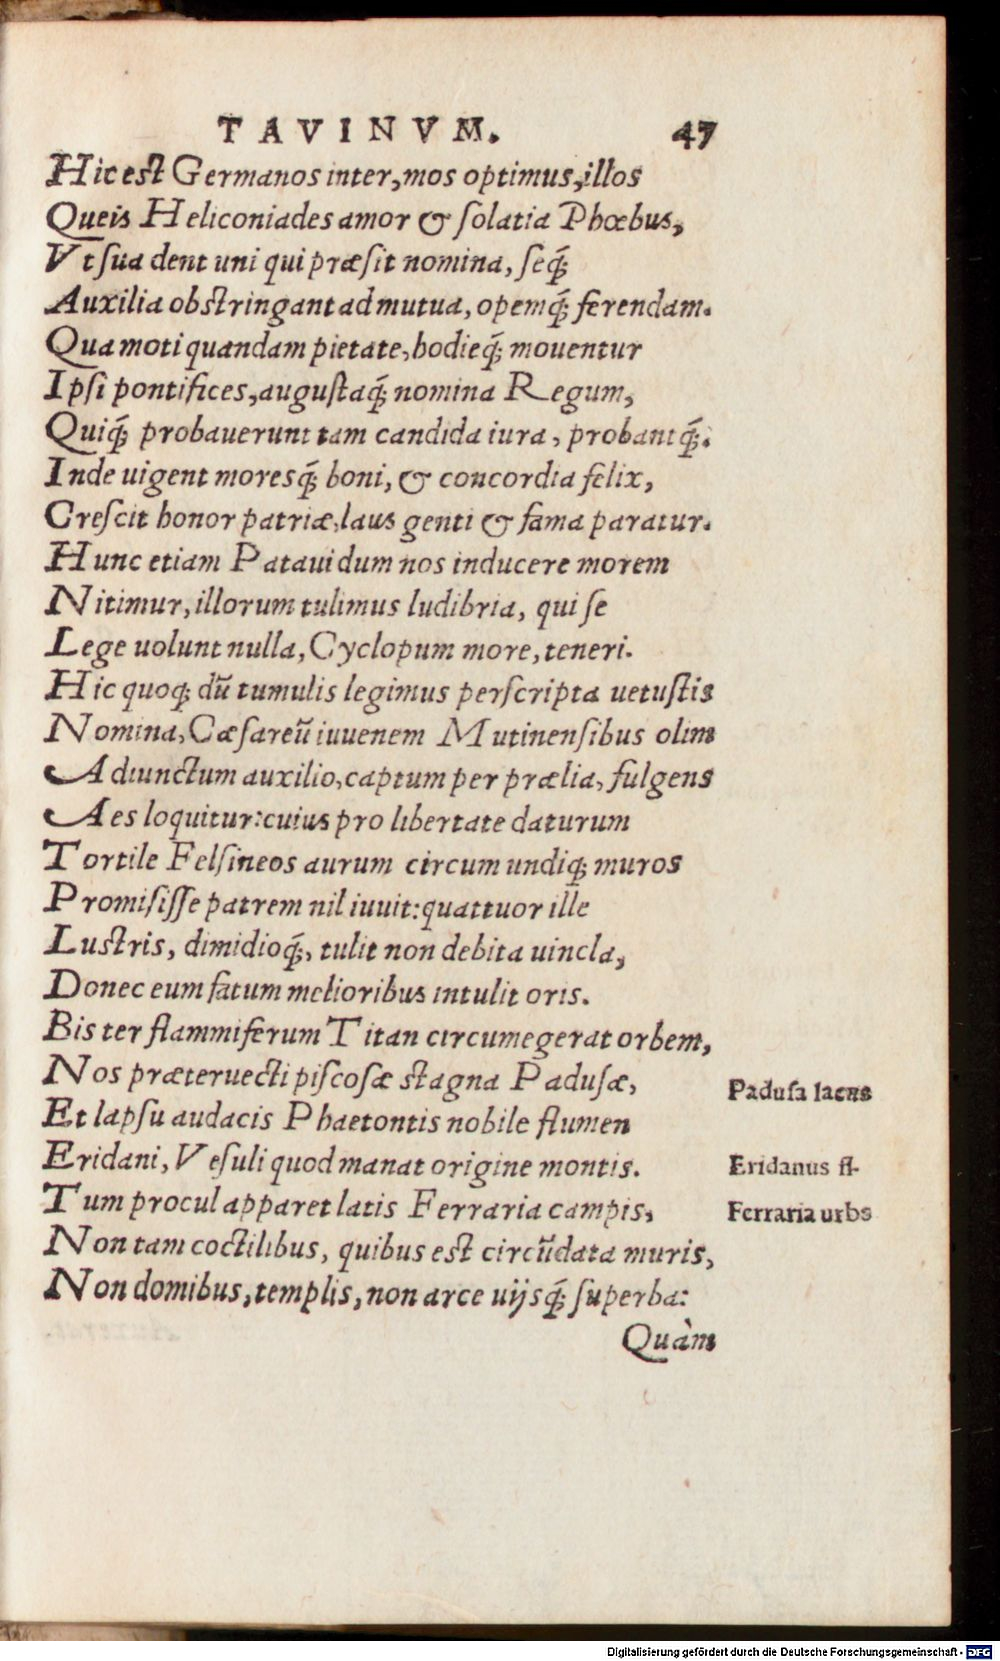 TAVINVM. 47
Hic est Germanos inter, mos optimus, illos
Queis Heliconiades amor & ſolatia Phœbus,
Vt ſua dent uni qui præſit nomina, ſeq́;
Auxilia obſtringant ad mutua, opemq́; ferendam.
Qua moti quandam pietate, hodieq́; mouentur
Ipſi pontifices, auguſtaq́; nomina Regum,
Quiq́; probauerunt tam candida iura, probantq́;.
Inde uigent moresq́; boni, & concordia felix,
Creſcit honor patriæ, laus genti & fama paratur.
Hunc etiam Pataui dum nos inducere morem
Nitimur, illorum tulimus ludibria, qui ſe
Lege uolunt nulla, Cyclopum more, teneri.
Hic quoq; dũ tumulis legimus perſcripta uetuſtis
Nomina, Cæſareũ iuuenem Mutinenſibus olim
Adiunctum auxilio, captum per prælia, fulgens
Aes loquitur: cuius pro libertate daturum
Tortile Felſineos aurum circum undiq; muros
Promiſiſſe patrem nil iuuit: quattuor ille
Luſtris, dimidioq́;, tulit non debita uincla,
Donec eum fatum melioribus intulit oris.
Bis ter flammiferum Titan circumegerat orbem,
Nos præteruecti piſcoſæ stagna Paduſæ,
Paduſa lacus
Et lapſu audacis Phaetontis nobile flumen
Eridani, Veſuli quod manat origine montis.
Eridanus fl.
Tum procul apparet latis Ferraria campis,
Ferraria urbs
Non tam coctilibus, quibus est circũdata muris,
Non domibus, templis, non arce uijsq́; ſuperba:
Quàm
Digitalisierung gefördert durch die Deutsche Forschungsgemeinschaft - DFG